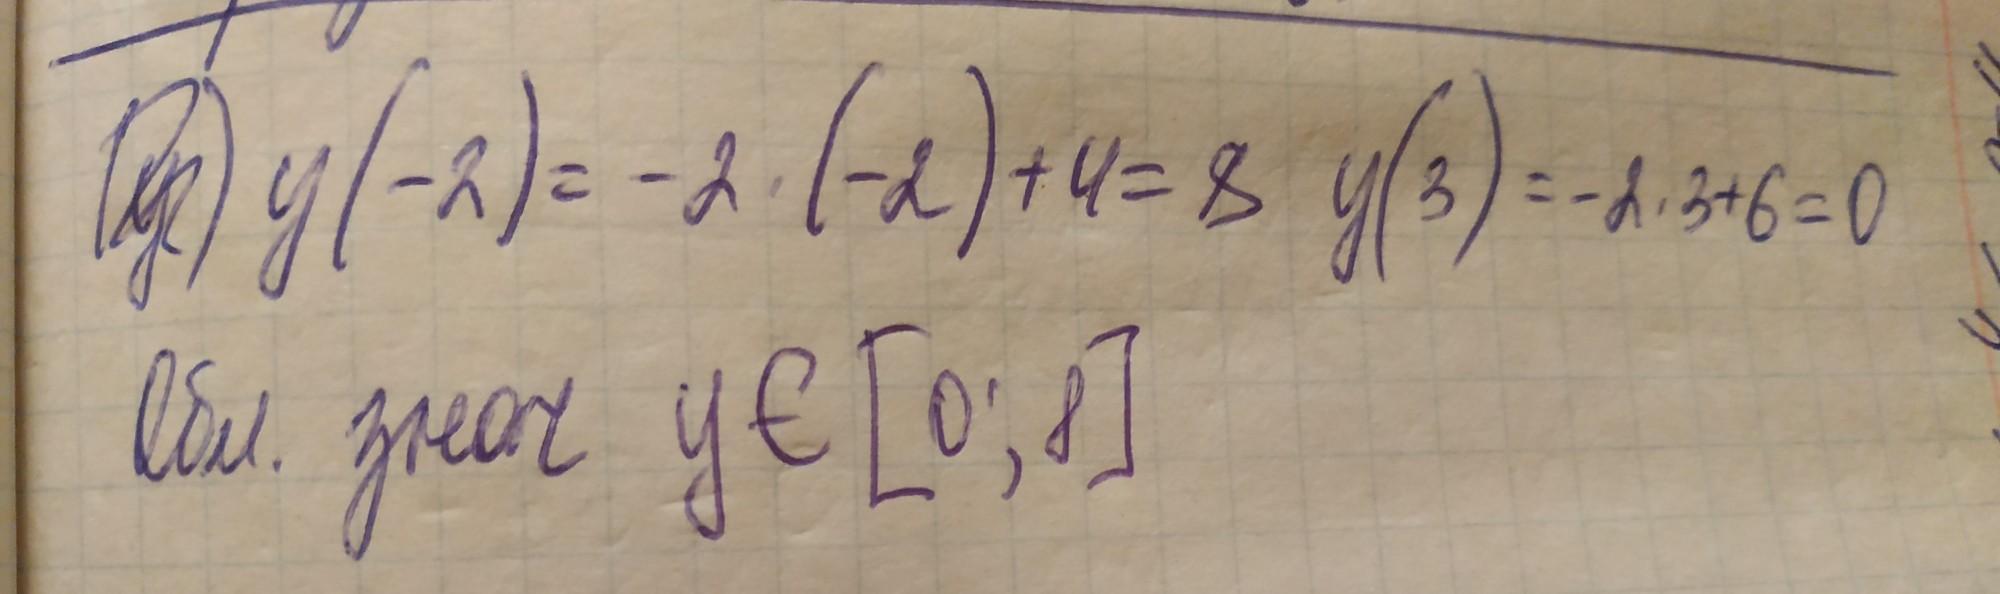 y(-2) = -2 · (-2) + 4 = 8 y(3) = -2 · 3 + 6 = 0
Обл. знач y ∈ [0; 8]